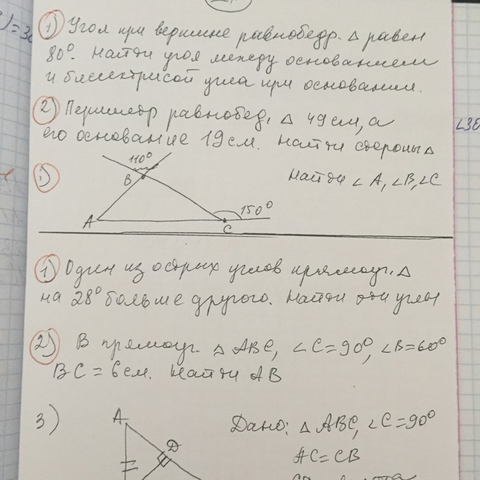 1) Угол при вершине равнобедр. △ равен
80°. Найти угол между основанием
и биссектрисой угла при основании.
2) Периметр равнобед. △ 49 см, а
его основание 19 см. Найти стороны △
3)
110°
Найти ∠A, ∠B, ∠C
B
150°
A
C
1) Один из острых углов прямоуг. △
на 28° больше другого. Найти эти углы
2) В прямоуг. △ ABC, ∠C=90°, ∠B=60°
BC = 6 см. Найти AB
3)
A
Дано: △ ABC, ∠C=90°
D
AC=CB